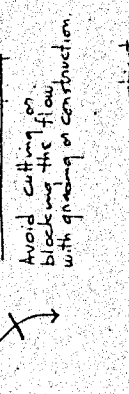 Avoid cutting or
blocking the flow
with grading or construction.